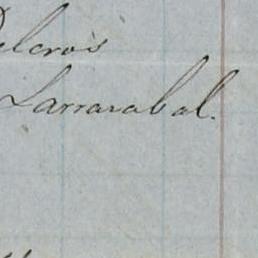 Delcrós
Larrarabal.